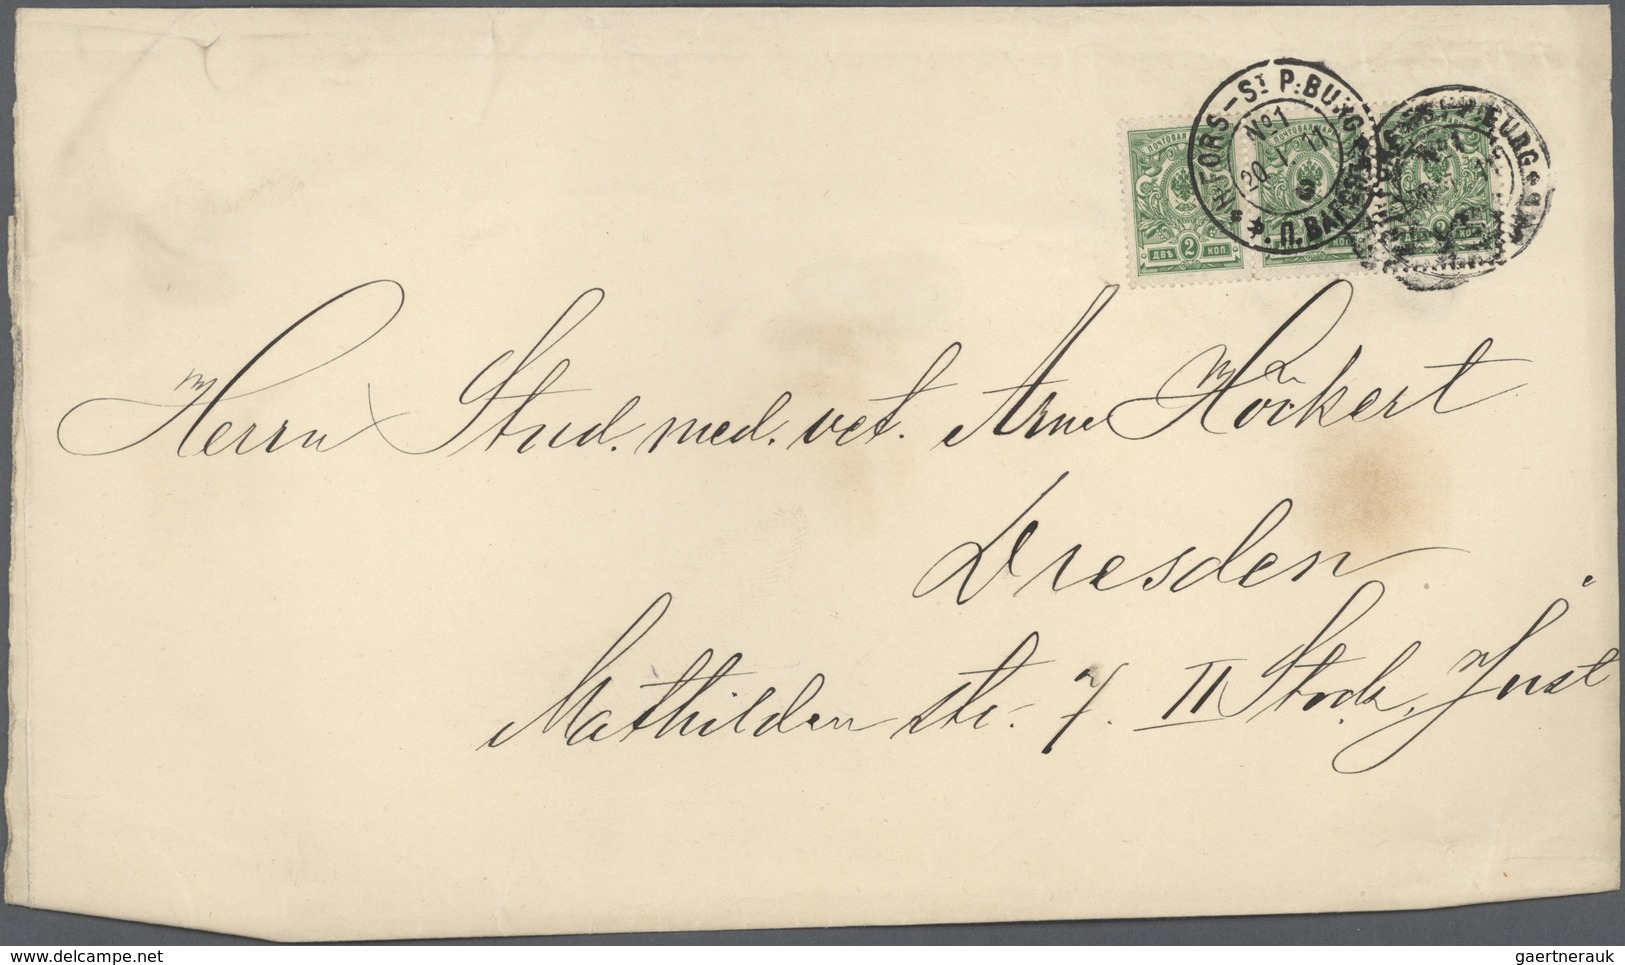 H:FORS–ST P:BURG
№1
20 I 11
3
Ф.П.ВАГОНЪ
P:BURG
№1
ПОЧТОВАЯ МАРКА
ДВѢ 2 КОП.
2 КОП.
Herrn Stud. med. vet. Arne Höckert
Dresden.
Mathilden str. 7. II Stock, Just
delcampe.net
gaertnerauk